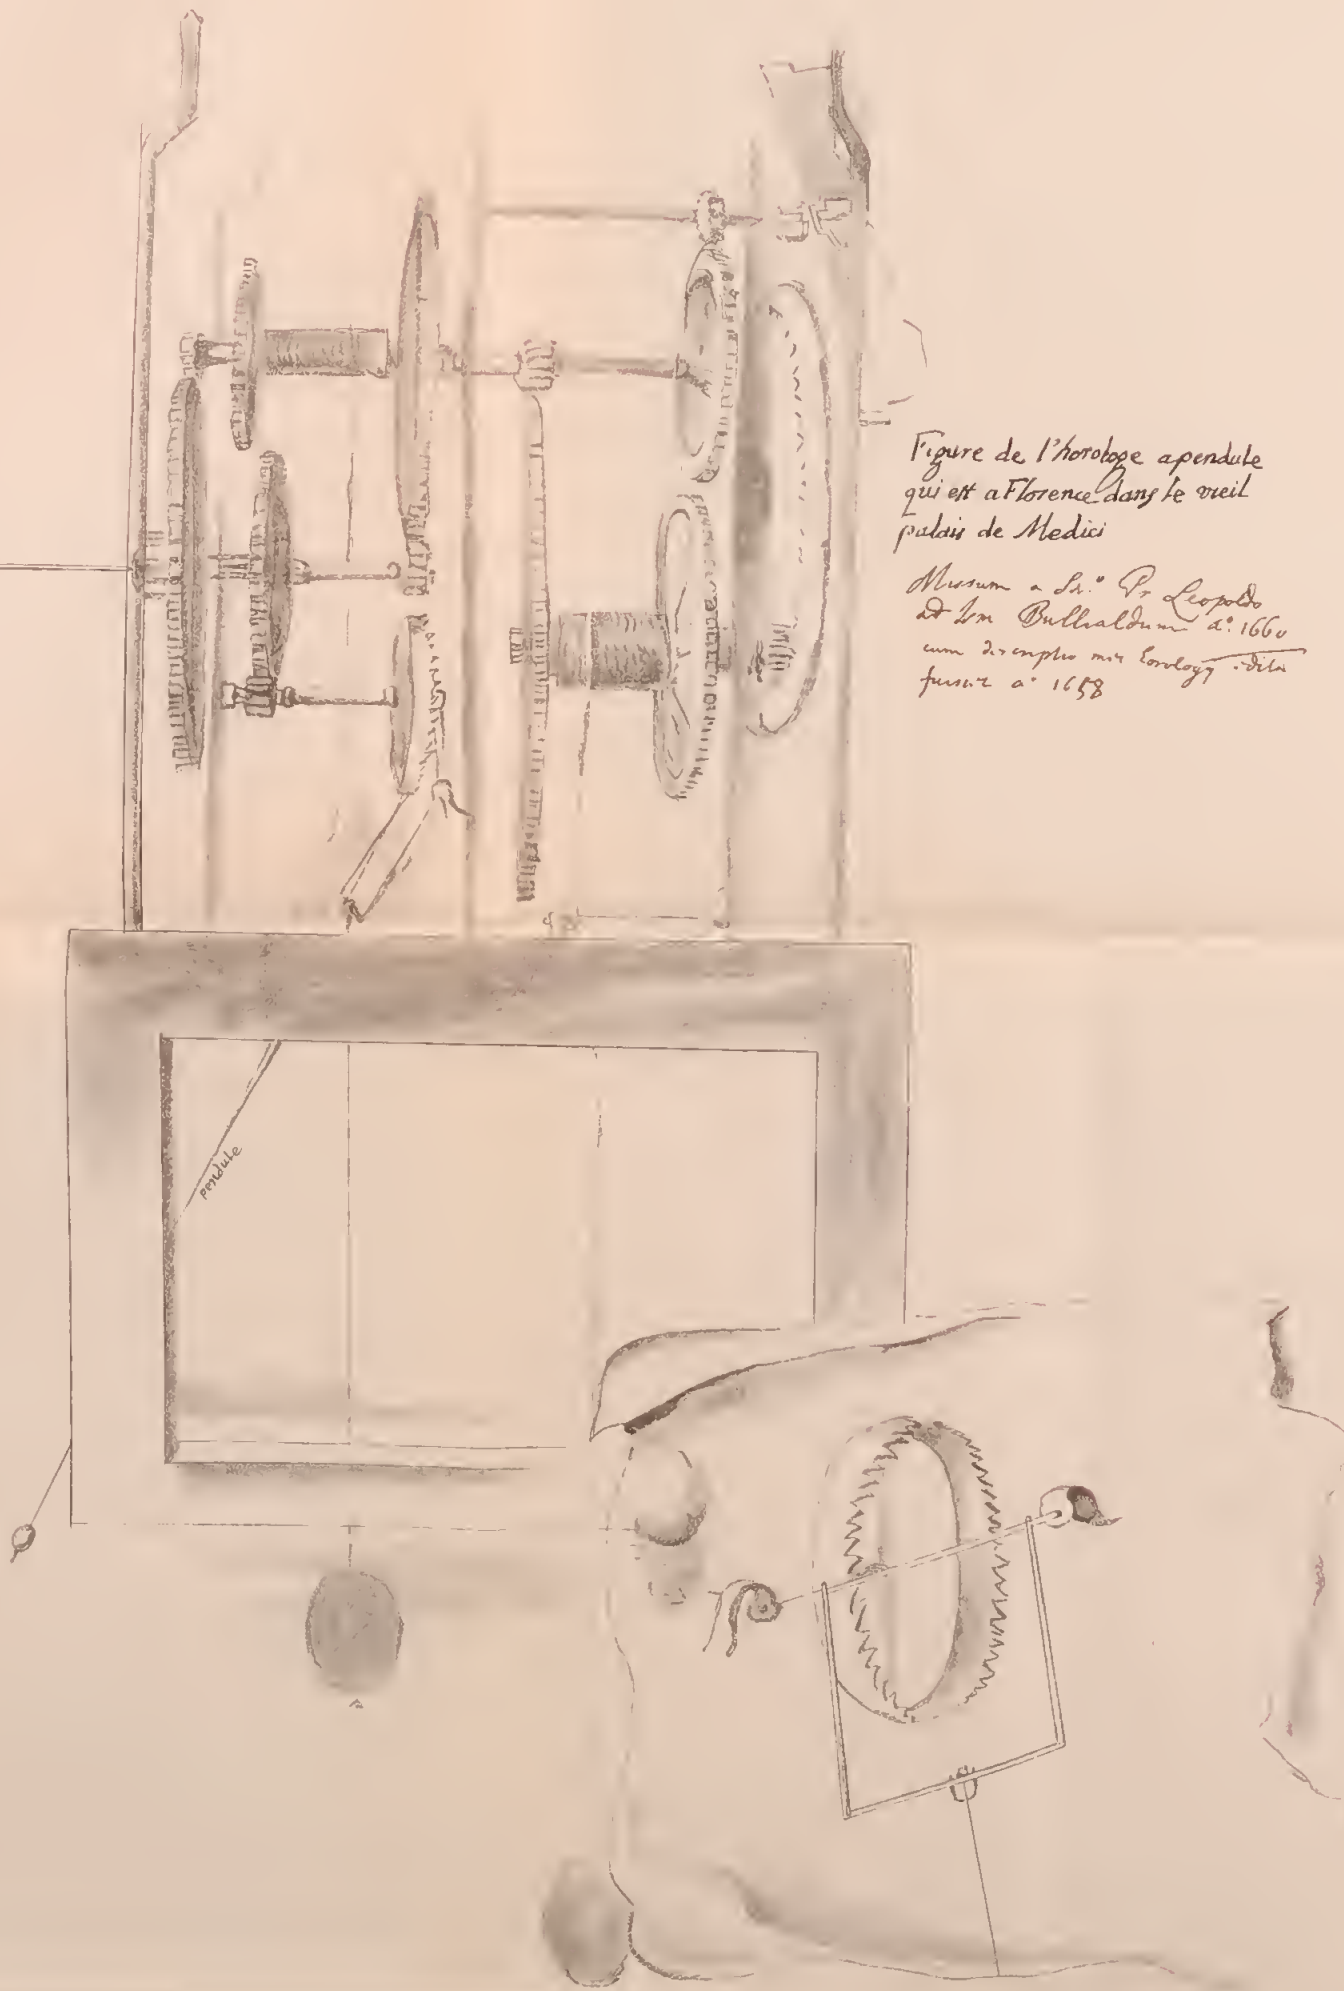 Figure de l'horologe apendule
qui est a Florence dans le vieil
palais de Medici
Missum a Sr.º Pr Leopoldo
ad Ism Bullialdum aº. 1660
cum mea horologij edita
fuisset aº 1658
pendule